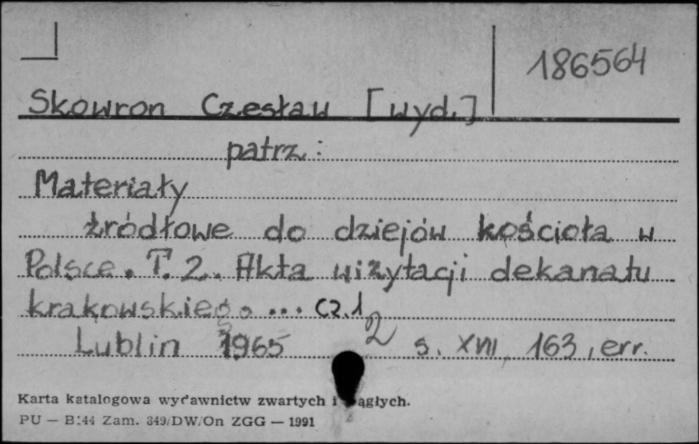 186564
Skowron Czesław [wyd.]
patrz:
Materiały
źródłowe do dziejów kościoła w
Polsce. T. 2. Akta wizytacji dekanatu
krakowskiego ... cz.1
2
Lublin 1965 s. XVII, 163, err.
Karta katalogowa wydawnictw zwartych i ciągłych.
PU — B:44 Zam. 349/DW/On ZGG — 1991